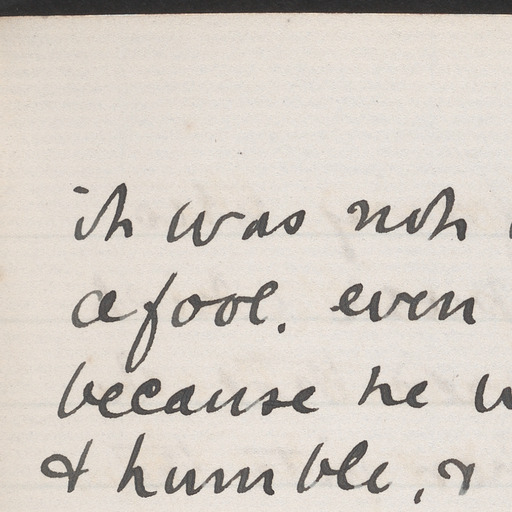 it was not
a fool. even
because he w
& humble, &